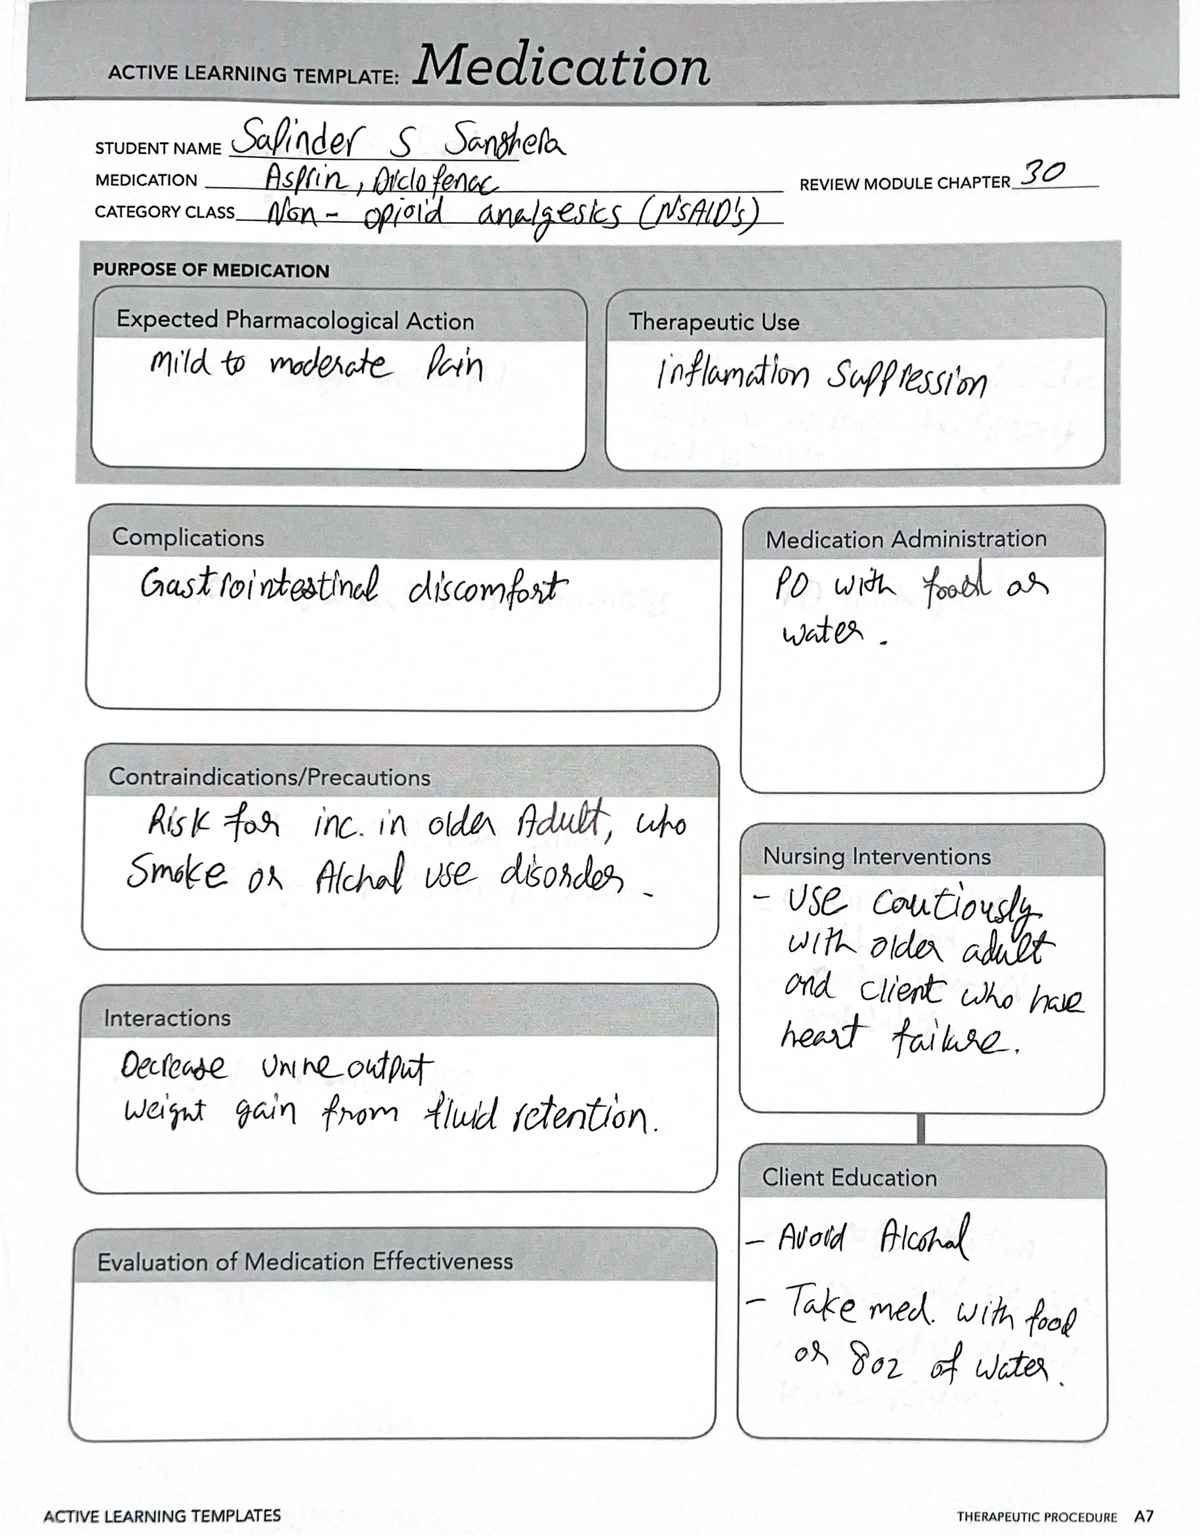 ACTIVE LEARNING TEMPLATE: Medication
STUDENT NAME Salinder S Sanghera
MEDICATION Asprin, Diclofenac
REVIEW MODULE CHAPTER 30
CATEGORY CLASS Non-opioid analgesics (NSAID's)
PURPOSE OF MEDICATION
Expected Pharmacological Action
Mild to moderate Pain
Therapeutic Use
inflamation Suppression
Complications
Gastrointestinal discomfort
Medication Administration
PO with food or
water.
Contraindications/Precautions
Risk for inc. in older Adult, who
Smoke or Alchal use disorder.
Nursing Interventions
- Use cautiously
with older adult
and client who have
heart failure.
Interactions
Decrease Urine output
Weight gain from fluid retention.
Client Education
- Avoid Alcohal
- Take med. with food
or 8oz of water.
Evaluation of Medication Effectiveness
ACTIVE LEARNING TEMPLATES
THERAPEUTIC PROCEDURE A7